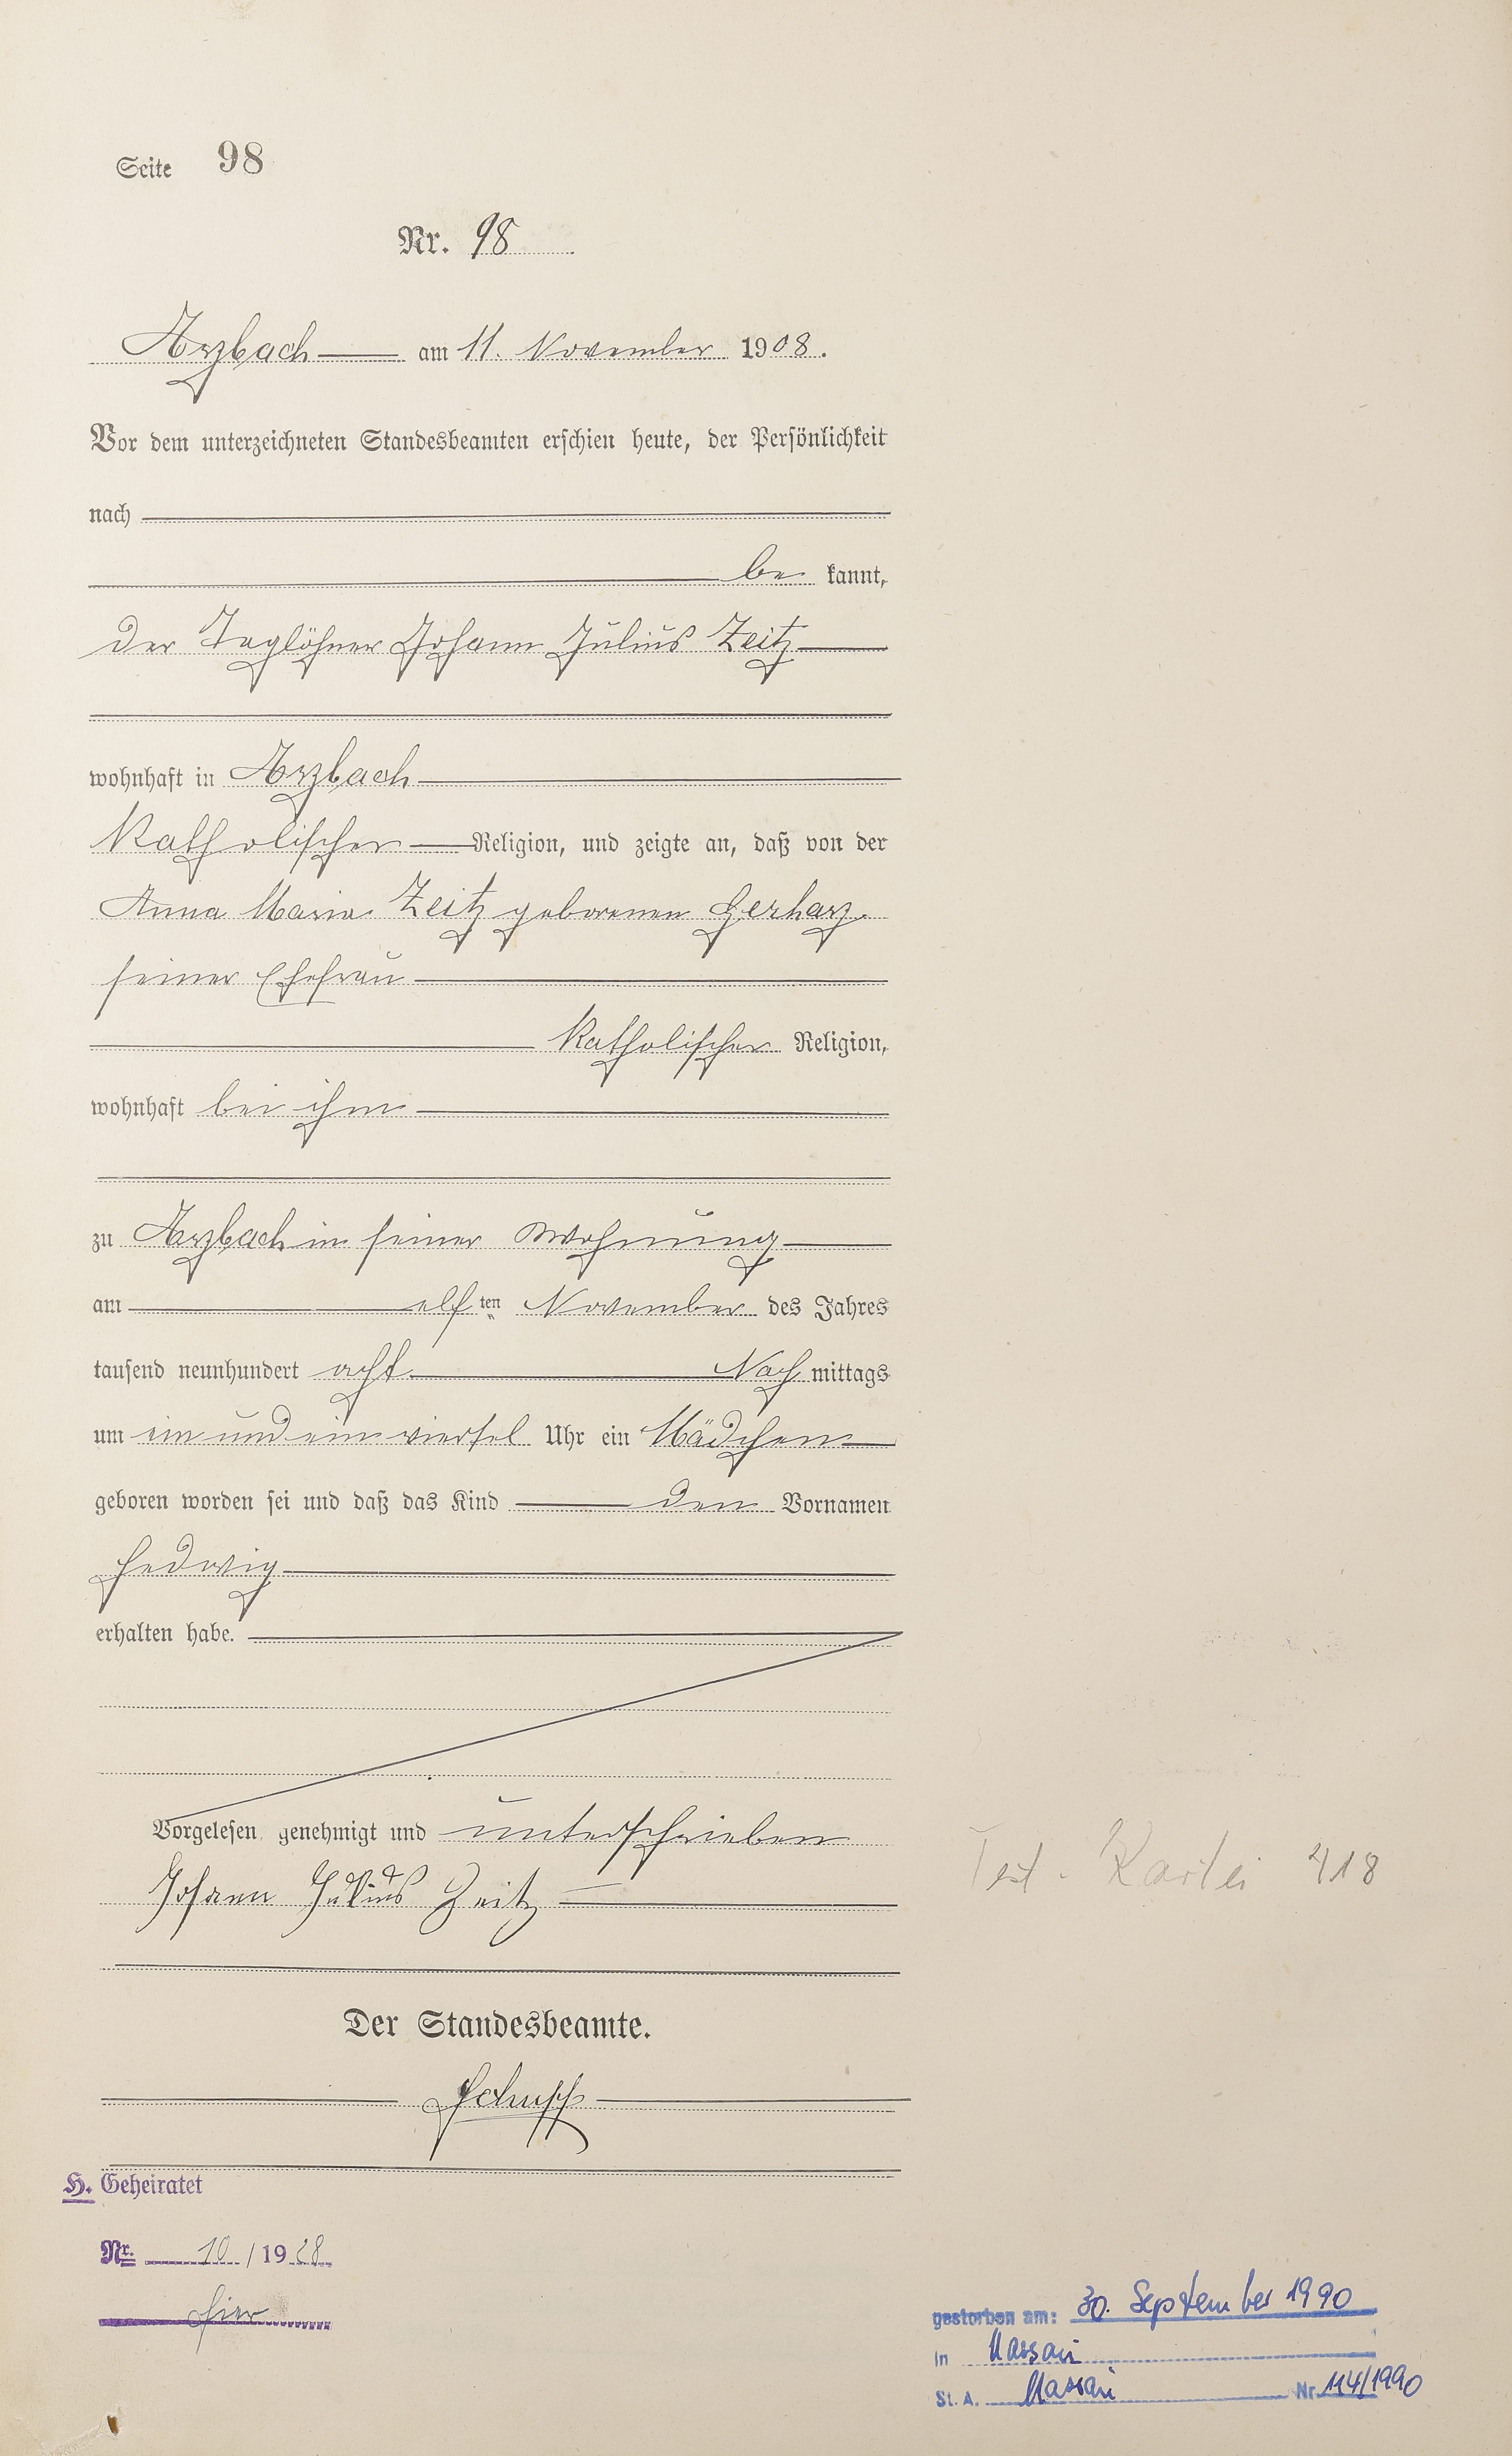 Seite 98
Nr. 98
Arzbach am 11. November 1908.
Vor dem unterzeichneten Standesbeamten erschien heute, der Persönlichkeit
nach
be kannt,
der Taglöhner Johann Julius Zeitz
wohnhaft in Arzbach
Katholischer Religion, und zeigte an, daß von der
Anna Maria Zeitz geborenen Gerharz
seiner Ehefrau
Katholischer Religion,
wohnhaft bei ihm
zu Arzbach in seiner Wohnung
am elf ten November des Jahres
tausend neunhundert acht Nach mittags
um ein und ein viertel Uhr ein Mädchen
geboren worden sei und daß das Kind den Vornamen
Hedwig
erhalten habe.
Vorgelesen, genehmigt und unterschrieben
Johann Julius Zeitz
Test-Kartei 418
Der Standesbeamte.
Schupp
H. Geheiratet
Nr. 10/1928
hier
gestorben am: 30. September 1990
in Nassau
St. A. Nassau Nr. 114/1990